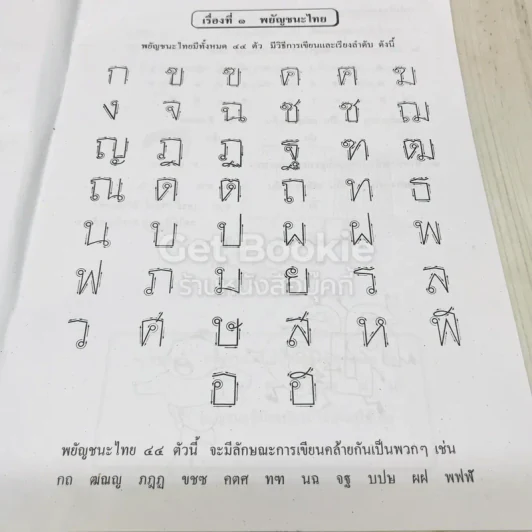 เรื่องที่ ๑ พยัญชนะไทย
พยัญชนะไทยมีทั้งหมด ๔๔ ตัว มีวิธีการเขียนและเรียงลำดับ ดังนี้
ก ข ฃ ค ฅ ฆ
ง จ ฉ ช ซ ฌ
ญ ฎ ฏ ฐ ฑ ฒ
ณ ด ต ถ ท ธ
น บ ป ผ ฝ พ
ฟ ภ ม ย ร ล
Get Bookie
ร้านหนังสือบุ๊คกี้
ว ศ ษ ส ห ฬ
อ ฮ
พยัญชนะไทย ๔๔ ตัวนี้ จะมีลักษณะการเขียนคล้ายกันเป็นพวกๆ เช่น
กถ ฒณญ ภฎฏ ขชซ คตศ ทฑ นฉ จฐ บปษ ผฝ พฟฬ